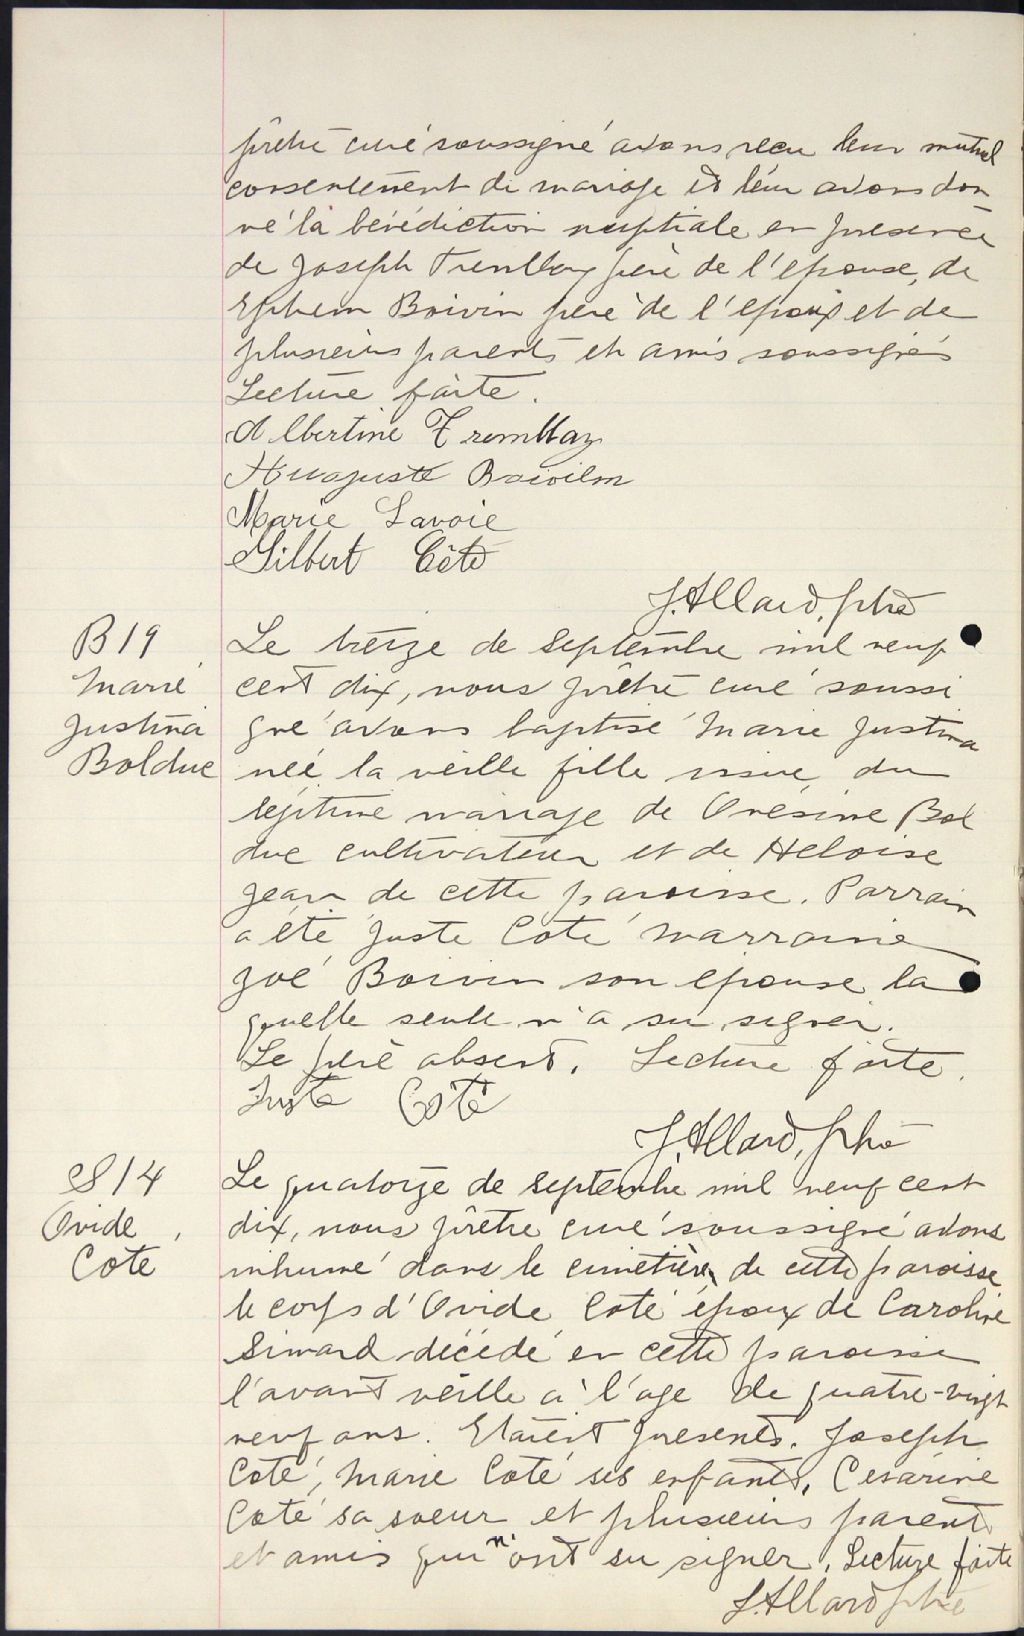 prêtre curé soussigné avons recu leur mutuel
consentement de mariage et leur avons don
né la bénédiction nuptiale en présence
de Joseph Tremblay père de l'épouse, de
Ephrem Boivin père de l'époux et de
plusieurs parents et amis soussignés
Lecture faite.
Albertine Tremblay
Auguste Boivin
Marie Lavoie
Gilbert Côté
J. Allard, ptre
B 19
Marie
Justina
Bolduc
Le treize de Septembre mil neuf
cent dix, nous prêtre curé soussi
gné avons baptisé Marie Justina
née la veille fille issue du
légitime mariage de Onésime Bol
duc cultivateur et de Heloise
Jean de cette paroisse. Parrain
a été Juste Coté marraine
Zoé Boivin son épouse la
quelle seule n'a su signer.
Le père absent. Lecture faite.
Juste Coté
J. Allard, ptre
S 14
Ovide
Cote
Le quatorze de septembre mil neuf cent
dix, nous prêtre curé soussigné avons
inhumé dans le cimetière de cette paroisse
le corps d'Ovide Coté époux de Caroline
Simard décédé en cette paroisse
l'avant veille à l'age de quatre-vingt
neuf ans. Etaient présents. Joseph
Coté, Marie Coté ses enfants, Cesarine
Coté sa soeur et plusieurs parents
et amis qui n'ont su signer. Lecture faite
J. Allard ptre